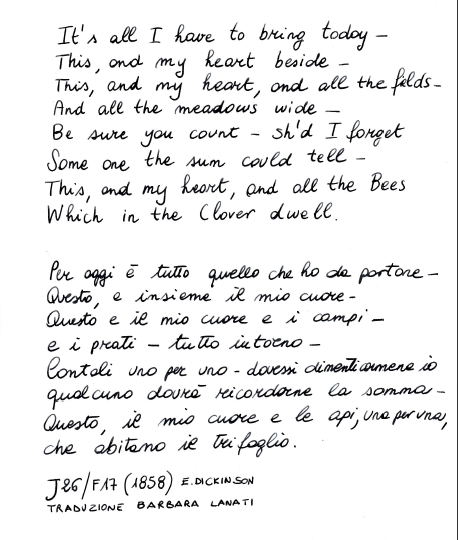 It's all I have to bring today –
This, and my heart beside –
This, and my heart, and all the fields –
And all the meadows wide –
Be sure you count – sh'd I forget
Some one the sum could tell –
This, and my heart, and all the Bees
Which in the Clover dwell.
Per oggi è tutto quello che ho da portare –
Questo, e insieme il mio cuore –
Questo e il mio cuore e i campi –
e i prati – tutto intorno –
Contali uno per uno – dovessi dimenticarmene io
qualcuno dovrà ricordarne la somma –
Questo, il mio cuore e le api, una per una,
che abitano il trifoglio.
J26/F17 (1858) E. DICKINSON
TRADUZIONE BARBARA LANATI